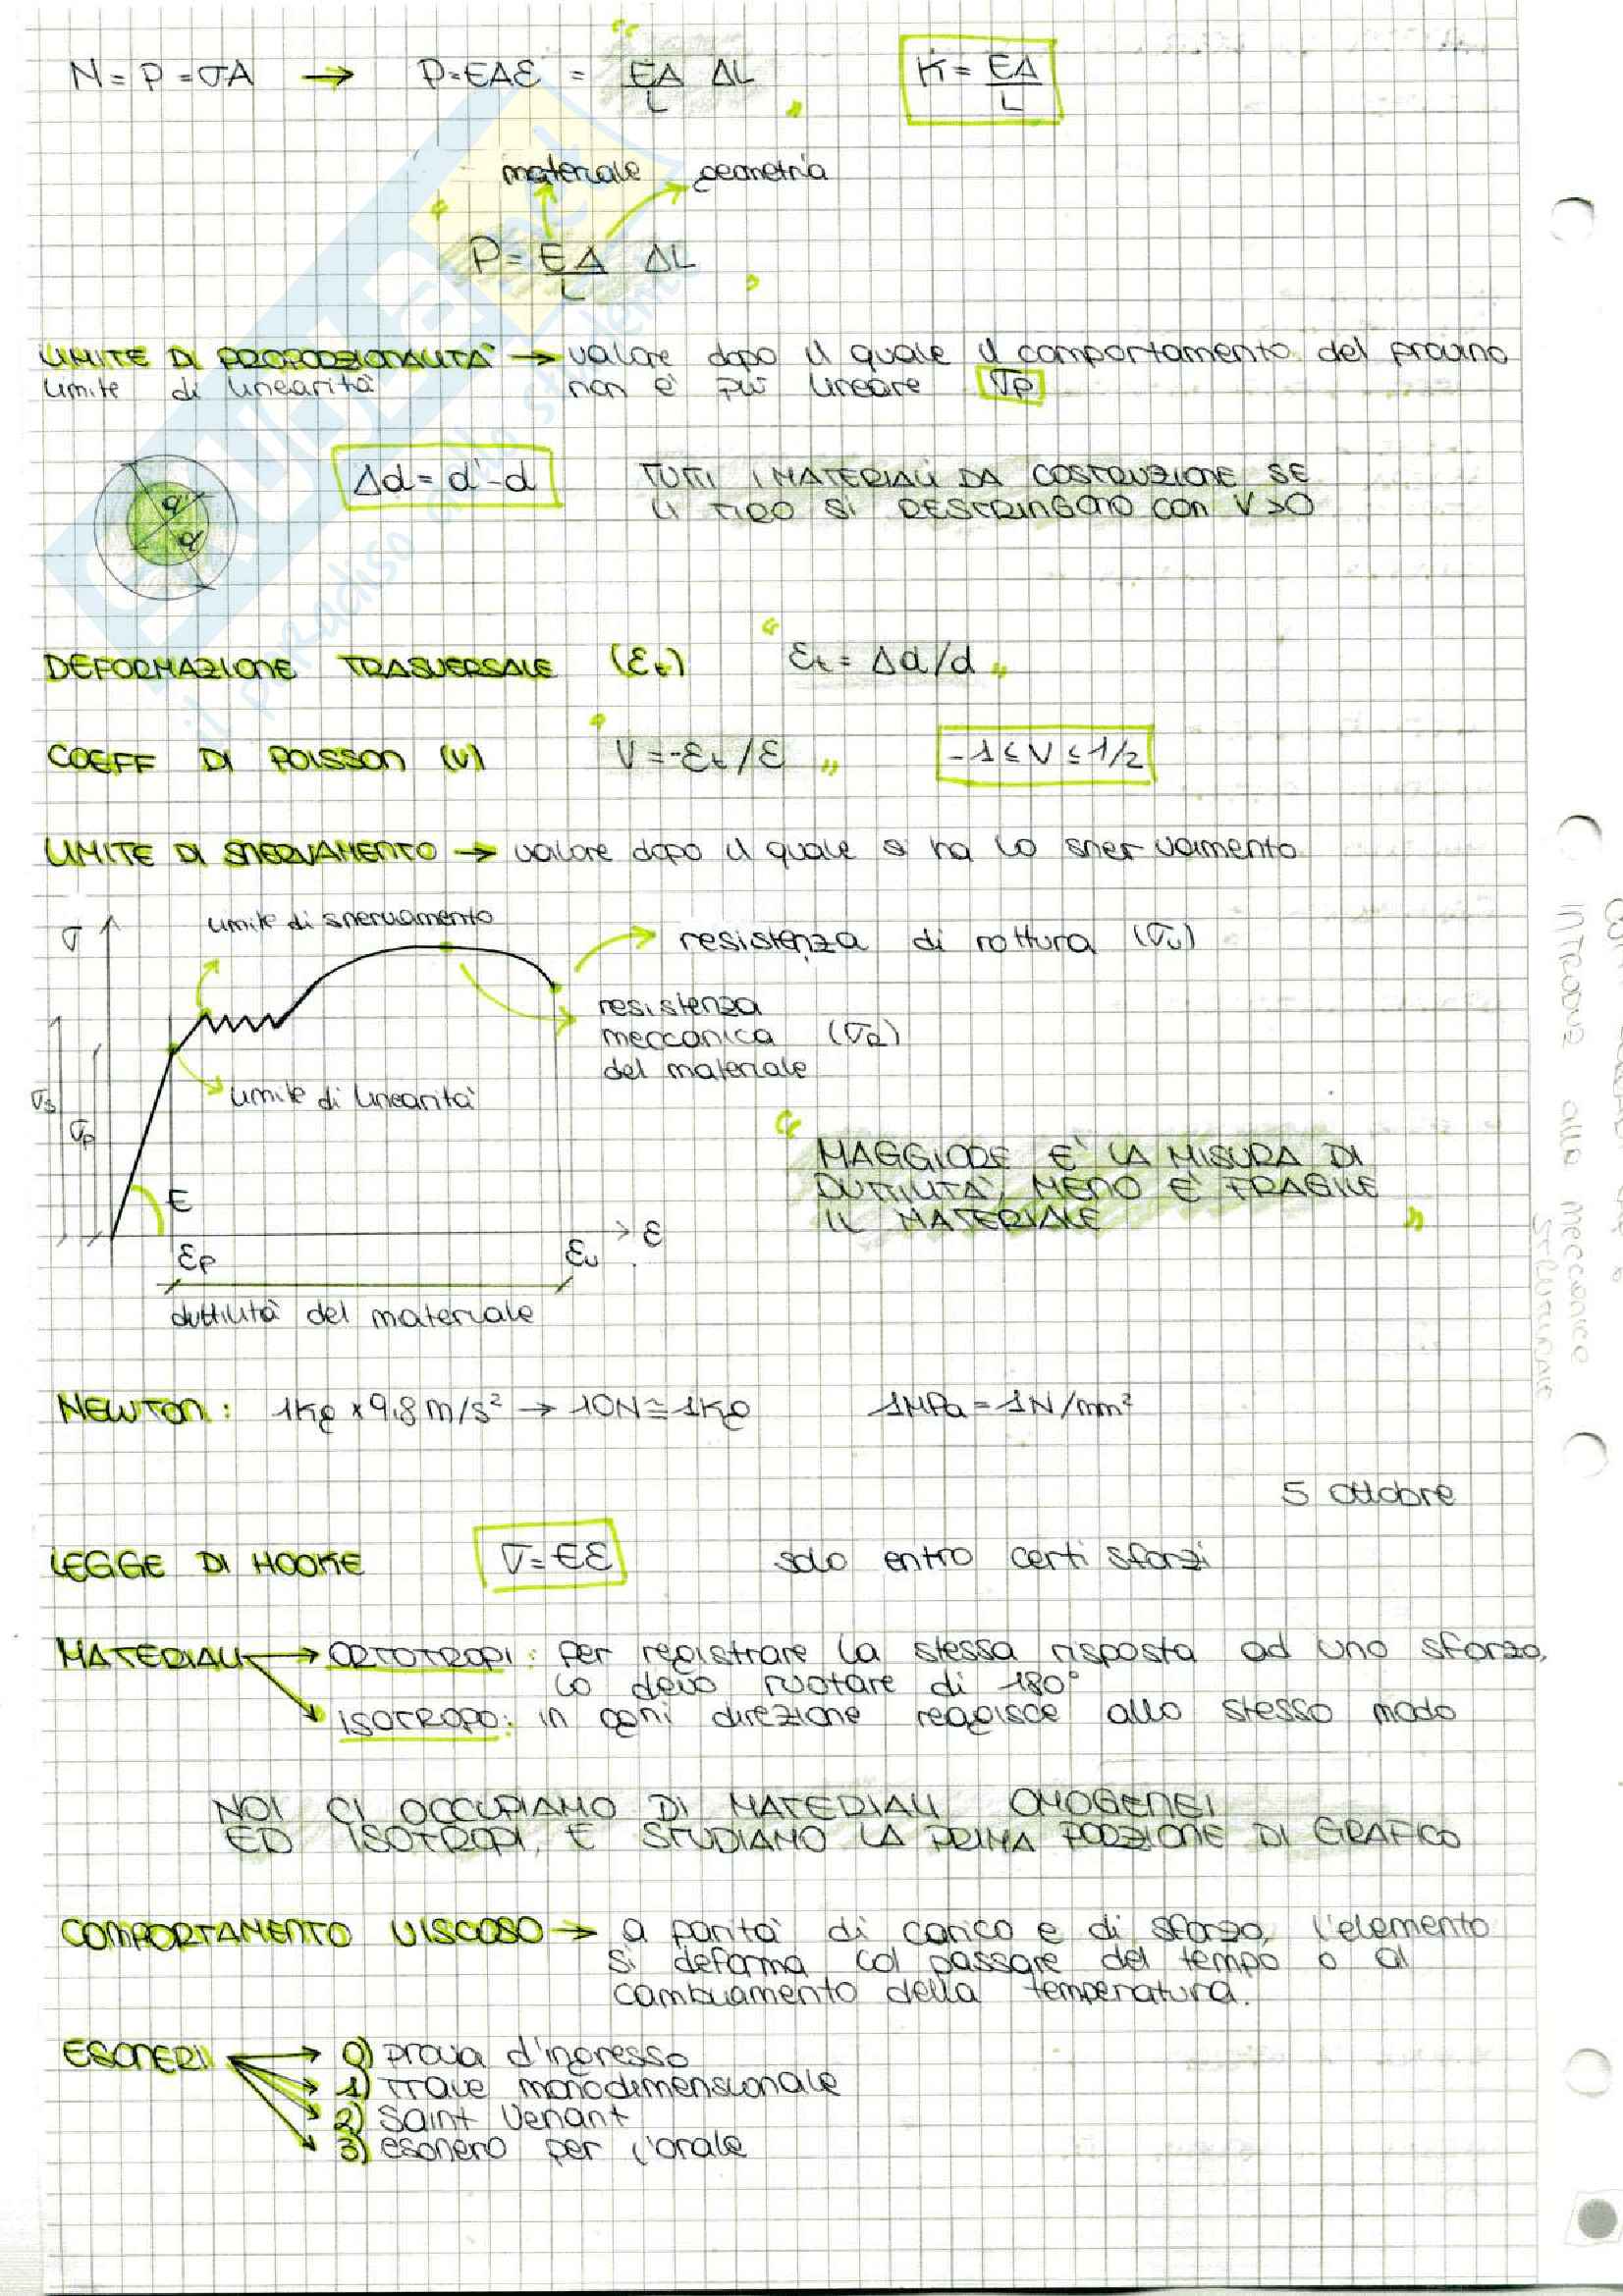 N = P = σA → P = EAε = " EA/L ΔL " K = EA/L
materiale geometria
" P = EA/L ΔL "
LIMITE DI PROPORZIONALITA' → valore dopo il quale il comportamento del provino
limite di linearità non è più lineare σp
Δd = d' - d
TUTTI I MATERIALI DA COSTRUZIONE SE
LI TIRO SI RESTRINGONO CON ν>0
d'
d
DEFORMAZIONE TRASVERSALE (εt) " εt = Δd/d "
COEFF DI POISSON (ν) " ν = -εt/ε " -1 ≤ ν ≤ 1/2
LIMITE DI SNERVAMENTO → valore dopo il quale si ha lo snervamento
σ
limite di snervamento
resistenza di rottura (σu)
resistenza
meccanica (σR)
del materiale
limite di linearità
σs
σp
" MAGGIORE E' LA MISURA DI
DUTTILITA', MENO E' FRAGILE
IL MATERIALE "
E
ε
εp εu
duttilità del materiale
NEWTON: 1Kg x 9.8 m/s² → 10N ≅ 1Kg 1MPa = 1N/mm²
5 ottobre
LEGGE DI HOOKE σ = Eε solo entro certi sforzi
MATERIALI → ORTOTROPI: per registrare la stessa risposta ad uno sforzo,
lo devo ruotare di 180°
ISOTROPO: in ogni direzione reagisce allo stesso modo
NOI CI OCCUPIAMO DI MATERIALI OMOGENEI
ED ISOTROPI, E STUDIAMO LA PRIMA PORZIONE DI GRAFICO
COMPORTAMENTO VISCOSO → a parità di carico e di sforzo, l'elemento
si deforma col passare del tempo o al
cambiamento della temperatura.
ESONERI → 0) prova d'ingresso
1) trave monodimensionale
2) Saint Venant
3) esonero per l'orale
INTRODUZ alla meccanica
STRUTTURALE
skuola.net
il paradiso dello studente